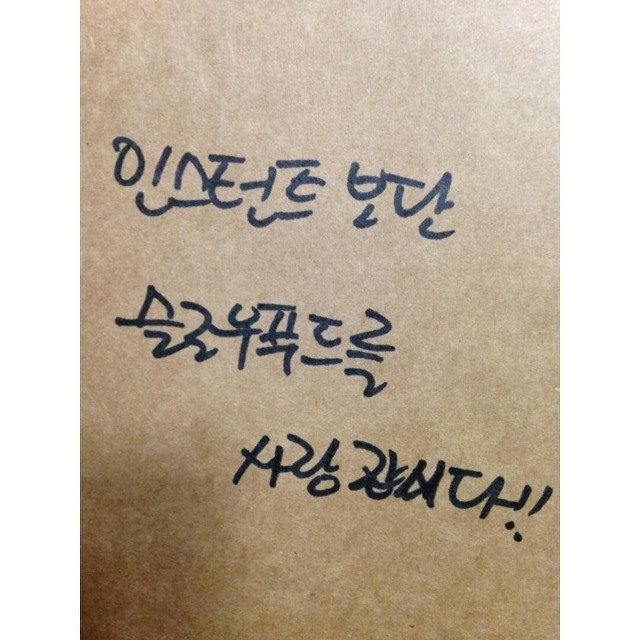 인스턴트 보단
슬로우푸드를
사랑합시다!!